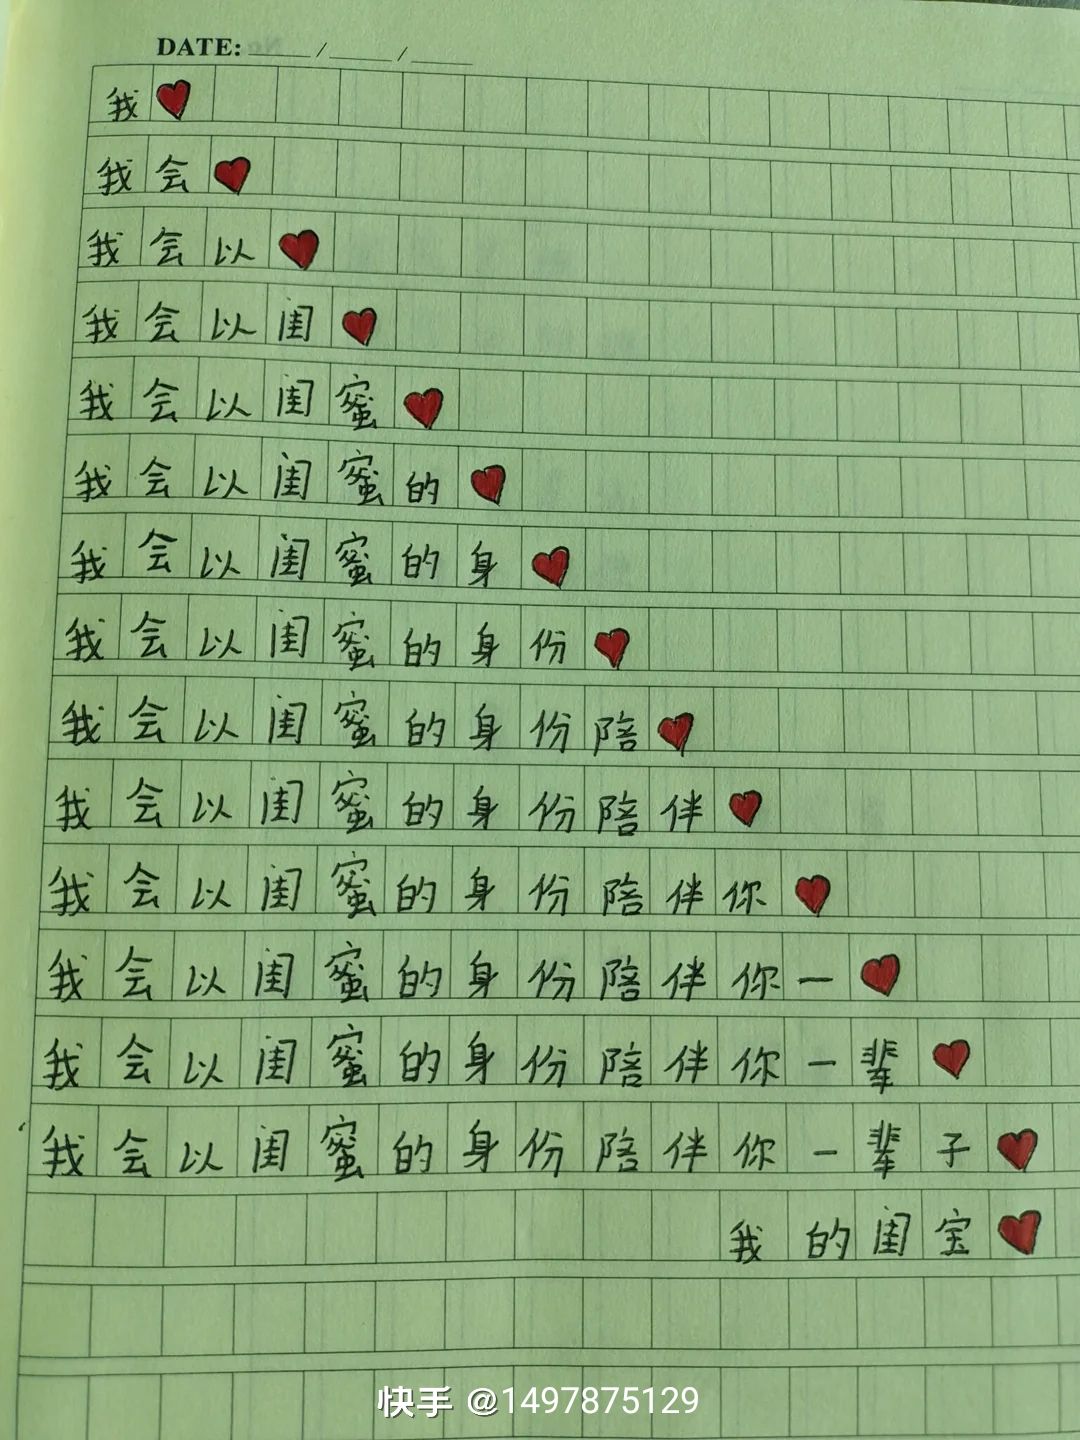 DATE: ____/____/____
我❤
我会❤
我会以❤
我会以闺❤
我会以闺蜜❤
我会以闺蜜的❤
我会以闺蜜的身❤
我会以闺蜜的身份❤
我会以闺蜜的身份陪❤
我会以闺蜜的身份陪伴❤
我会以闺蜜的身份陪伴你❤
我会以闺蜜的身份陪伴你一❤
我会以闺蜜的身份陪伴你一辈❤
我会以闺蜜的身份陪伴你一辈子❤
我的闺宝❤
快手 @1497875129